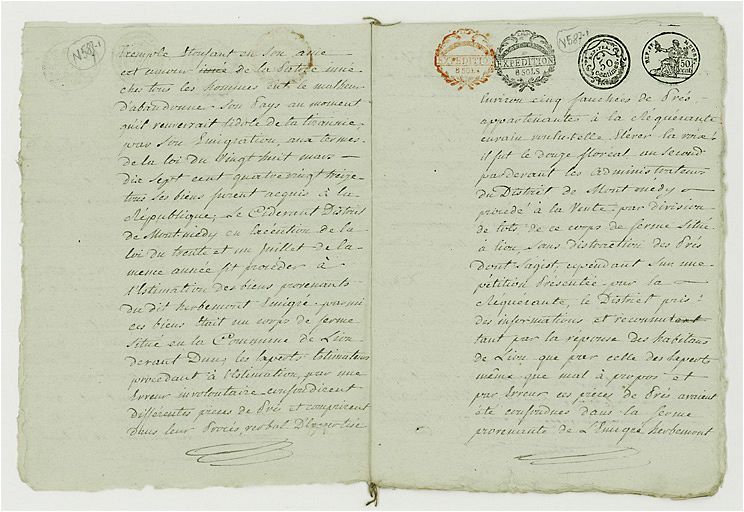 N 587-1
Exemple Etoufant en son ame
cet amour innée de la Patrie inné
ches tous les hommes eut le malheur
d'abandonner son Pays au moment
qu'il renversait lidole de la tirannie,
par son Emigration, aux termes
de la loi du Vingt huit mars
dix sept cent quatre vingt treize
tous ses biens furent acquis à la
République; Le Ciderant District
de Montmedy en Exécution de la
loi du trente et un juillet de la
meme année fit procéder à
l'Estimation des biens provenants
du dit herbemont Emigré. parmi
ces biens Etait un corps de ferme
Situé en la Commune de Lion
devant Duns les Experts Estimateurs
procedant à l'Estimation, par une
Erreur involontaire confondirent
differentes pieces de Prés et comprirent
dans leur Procès verbal D'Expertise
EXPEDITION
8 SOLS
EXPEDITION
8 SOLS
N 587-1
50
50
Environ cinq fauchées de Prés
appartenantes à la Réquerante
envain voulut elle Elever la voix:
il fut le douze floréal an Second
pardevant les administrateurs
du District de Montmedy
procédé à la Vente par division
de lots, de ce corps de ferme Situé
à Lion, Sans distraction des Prés
dont Sagit, cependant Sur une
pétition Présentée par la
Réquerante, le District prit
des informations et reconnut
tant par la réponse des habitans
de Lion que par celle des Experts
même que mal à propos et
par Erreur ces pieces de Prés avaient
été confondues dans la ferme
provenante de L'Emigré herbemont